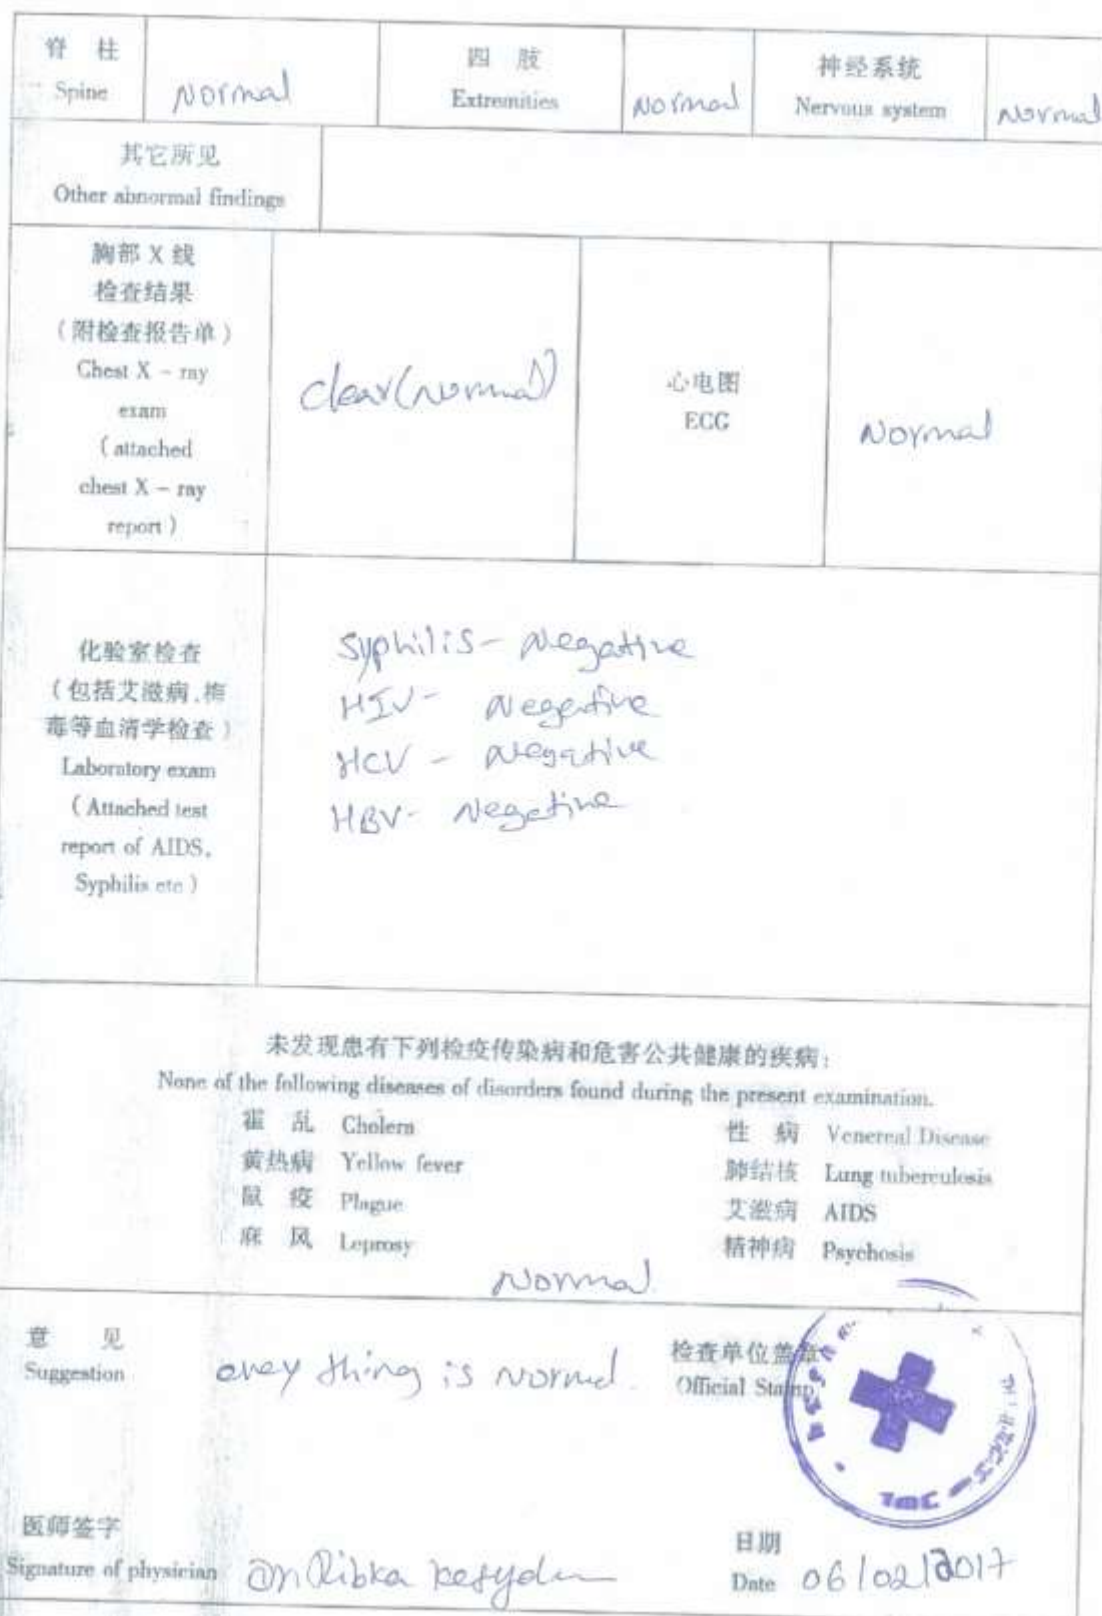 脊 柱
Spine
Normal
四 肢
Extremities
Normal
神经系统
Nervous system
Normal
其它所见
Other abnormal findings
胸部 X 线
检查结果
（附检查报告单）
Chest X - ray
exam
( attached
chest X - ray
report )
clear (normal)
心电图
ECG
Normal
化验室检查
（包括艾滋病、梅
毒等血清学检查）
Laboratory exam
( Attached test
report of AIDS,
Syphilis etc )
Syphilis - Negative
HIV - Negative
HCV - Negative
HBV - Negative
未发现患有下列检疫传染病和危害公共健康的疾病：
None of the following diseases of disorders found during the present examination.
霍 乱 Cholera
性 病 Venereal Disease
黄热病 Yellow fever
肺结核 Lung tuberculosis
鼠 疫 Plague
艾滋病 AIDS
麻 风 Leprosy
精神病 Psychosis
Normal
意 见
Suggestion
every thing is Normal.
检查单位盖章
Official Stamp
医师签字
Signature of physician
Ribka
日期
Date 06/02/2017